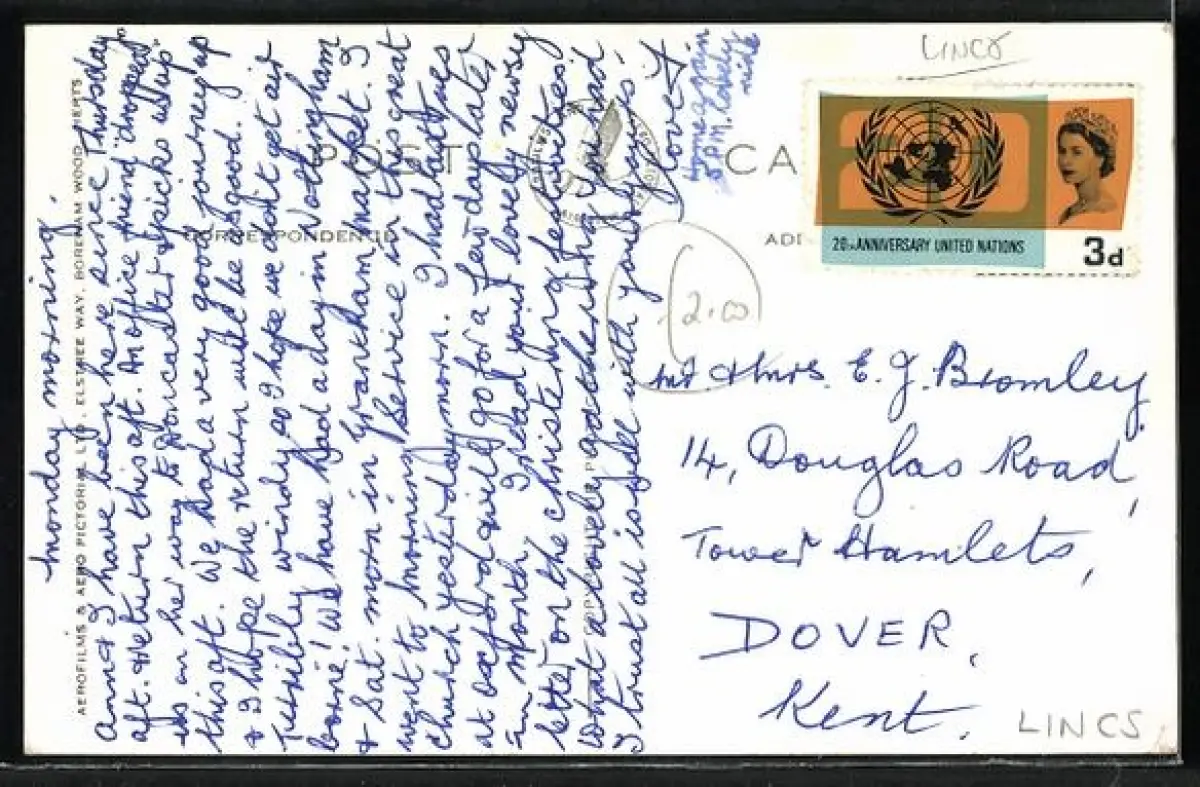 Monday morning.
Ann & I have been here since Thursday
aft. & return this aft. An office friend "dropped"
us on her way to Doncaster & picks us up
this aft. We had a very good journey up
& I hope the return will be as good. It
terribly windy so I hope we don't get air
borne! We have had a day in Nottingham
& Sat. morn in Grantham market. I
went to morning service in this great
church yesterday morn. I had last
at Oxford & will go for a few days later
in month. I read your lovely newsy
letter on the christening festivities!
What a lovely gathering you had
I trust all is well with you & yours,
Love
Home again
5 P.M. Lovely
ride
AEROFILMS & AERO PICTORIAL LTD., ELSTREE WAY, BOREHAM WOOD, HERTS
POST CA
CORRESPONDENCE
ADD
COPYRIGHT
LINCS
20TH ANNIVERSARY UNITED NATIONS
3d
2.00
Mr & Mrs. E. J. Bromley
14, Douglas Road,
Tower Hamlets,
DOVER,
Kent.
LINCS